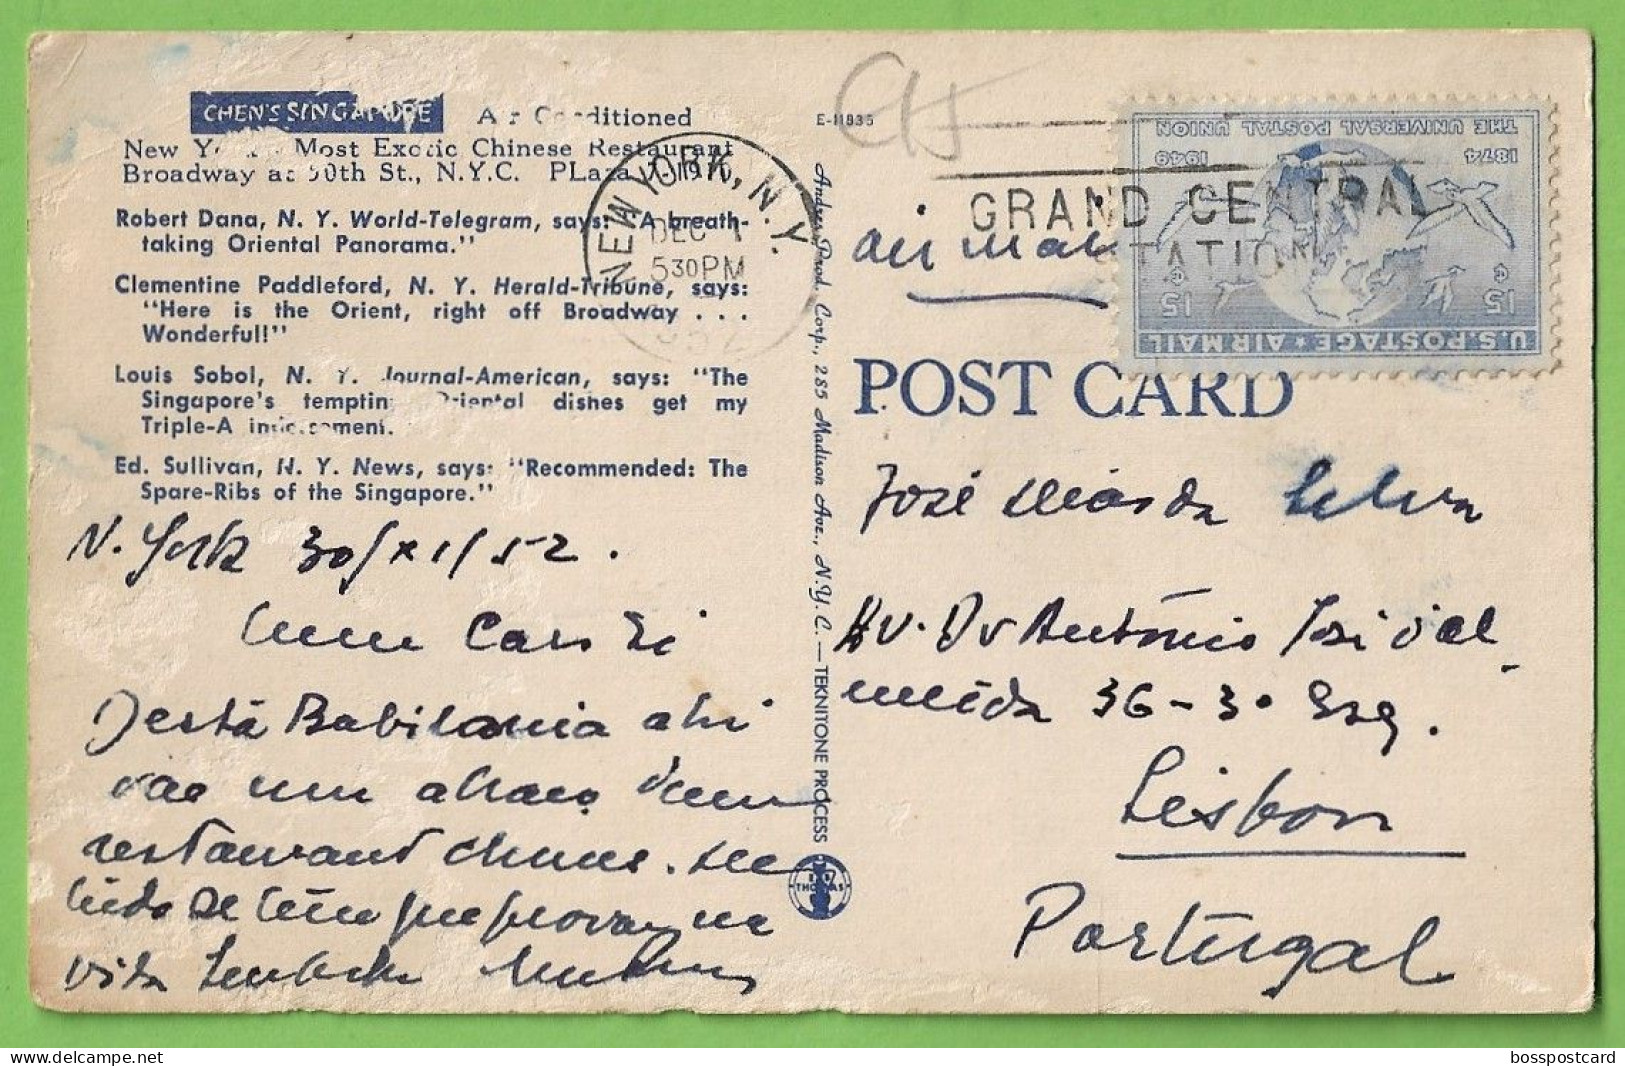 CHEN'S SINGAPORE Air Conditioned
New York's Most Exotic Chinese Restaurant
Broadway at 50th St., N.Y.C. PLaza 7-1910
Robert Dana, N. Y. World-Telegram, says: "A breath-
taking Oriental Panorama."
Clementine Paddleford, N. Y. Herald-Tribune, says:
"Here is the Orient, right off Broadway . . .
Wonderful!"
Louis Sobol, N. Y. Journal-American, says: "The
Singapore's tempting Oriental dishes get my
Triple-A indorsement.
Ed. Sullivan, N. Y. News, says: "Recommended: The
Spare-Ribs of the Singapore."
N. York 30/XI/52.
Meu Caro Zé
Desta Babilonia ahi
vae um abraço dum
restaurant chines.
tudo se tem que provar na
vida
NEW YORK, N.Y.
DEC 1
530PM
1952
E-11935
Andres Prod. Corp., 285 Madison Ave., N.Y.C.—TEKNITONE PROCESS
THOMAS
GRAND CENTRAL
STATION
THE UNIVERSAL POSTAL UNION
1874 1949
15¢ 15¢
U.S. POSTAGE AIR MAIL
air mail
POST CARD
José Miranda Silva
Av. Dr Antonio José d'Al-
meida 36-3º Esq.
Lisbon
Portugal
bosspostcard